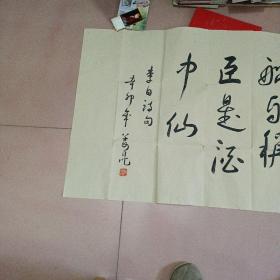 船自称
臣是酒
中仙
李白诗句
辛卯年